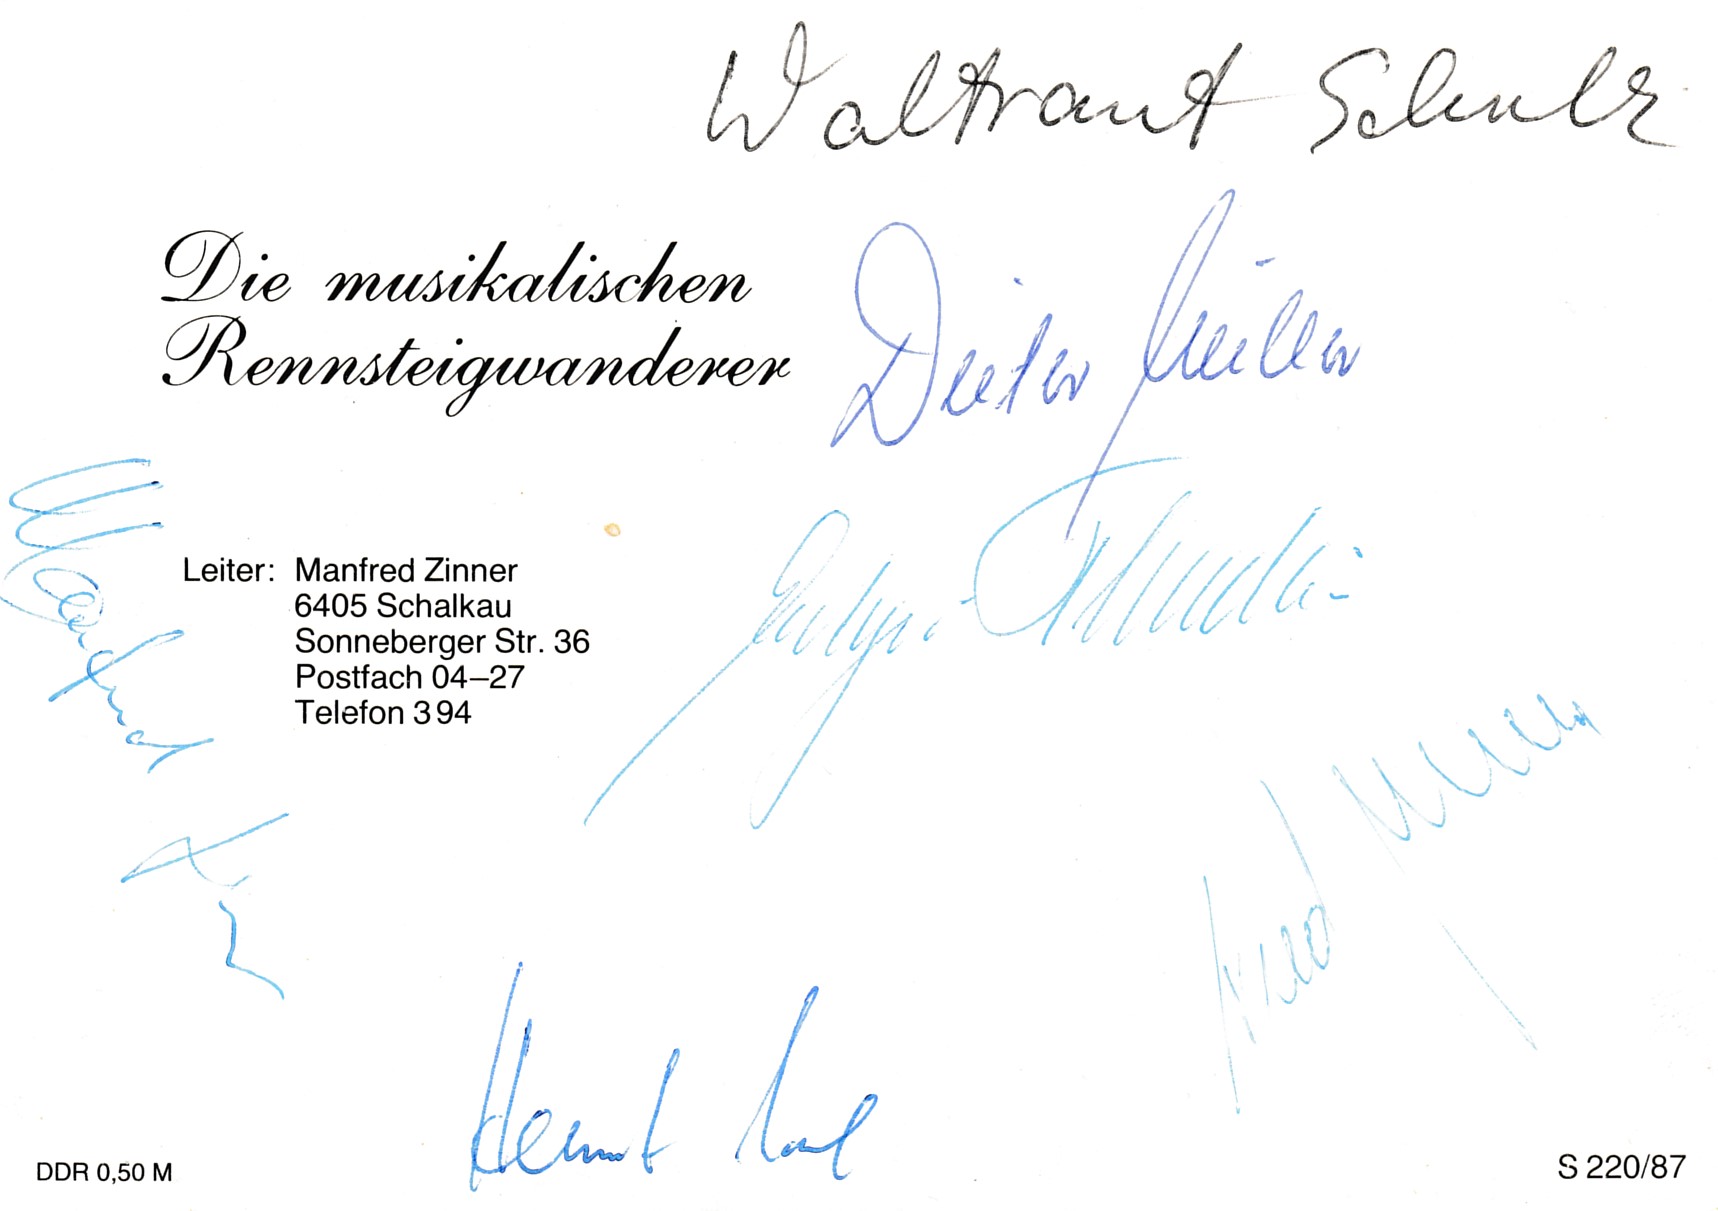 Waltraut Schulz
Die musikalischen
Rennsteigwanderer
Dieter Müller
Leiter: Manfred Zinner
6405 Schalkau
Sonneberger Str. 36
Postfach 04–27
Telefon 394
Manfred
DDR 0,50 M
S 220/87